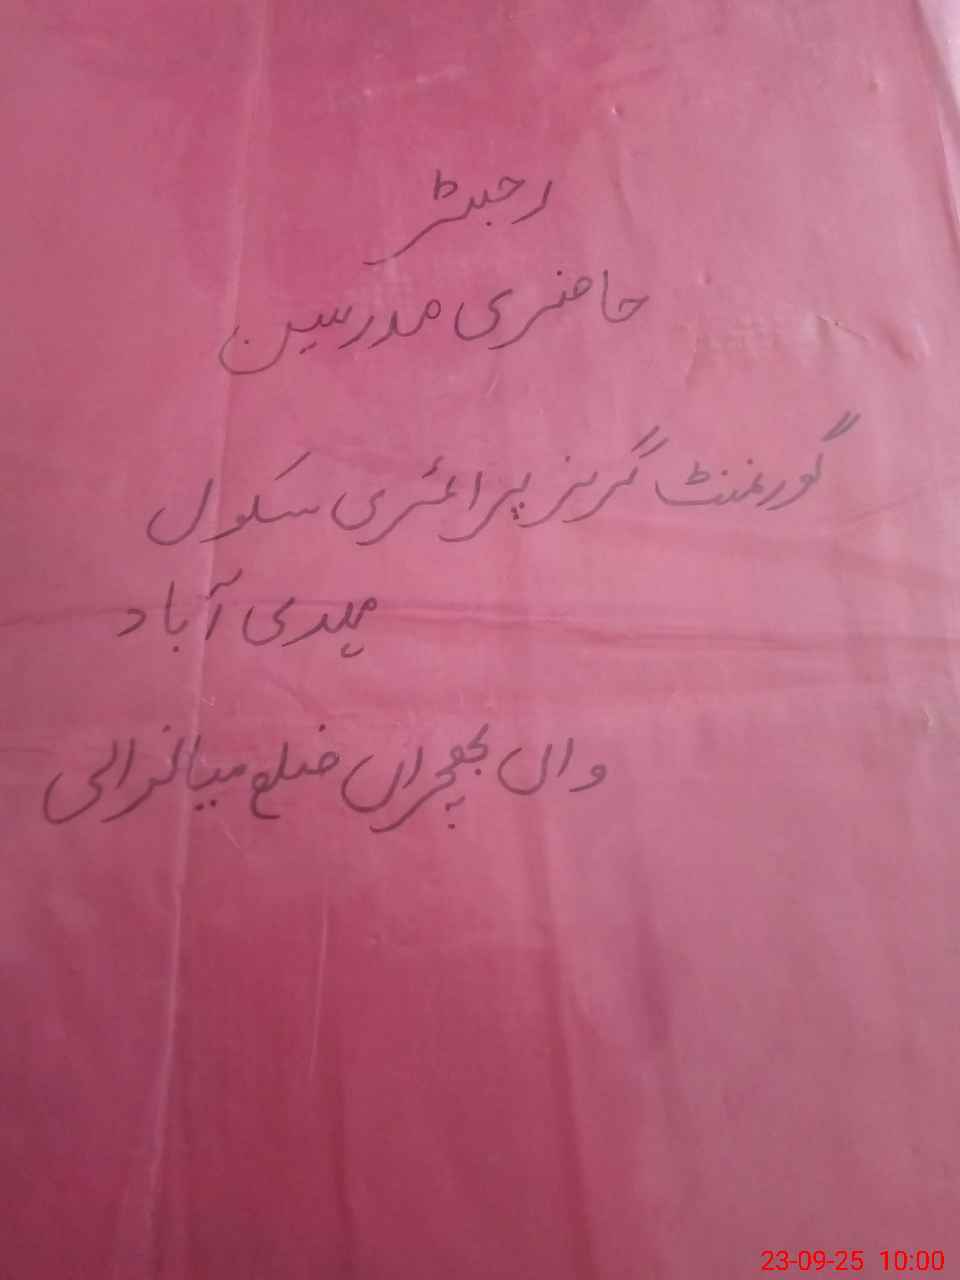 رجسٹر
حاضری مدرسین
گورنمنٹ گرلز پرائمری سکول
مہدی آباد
واں بھچراں ضلع میانوالی
23-09-25 10:00